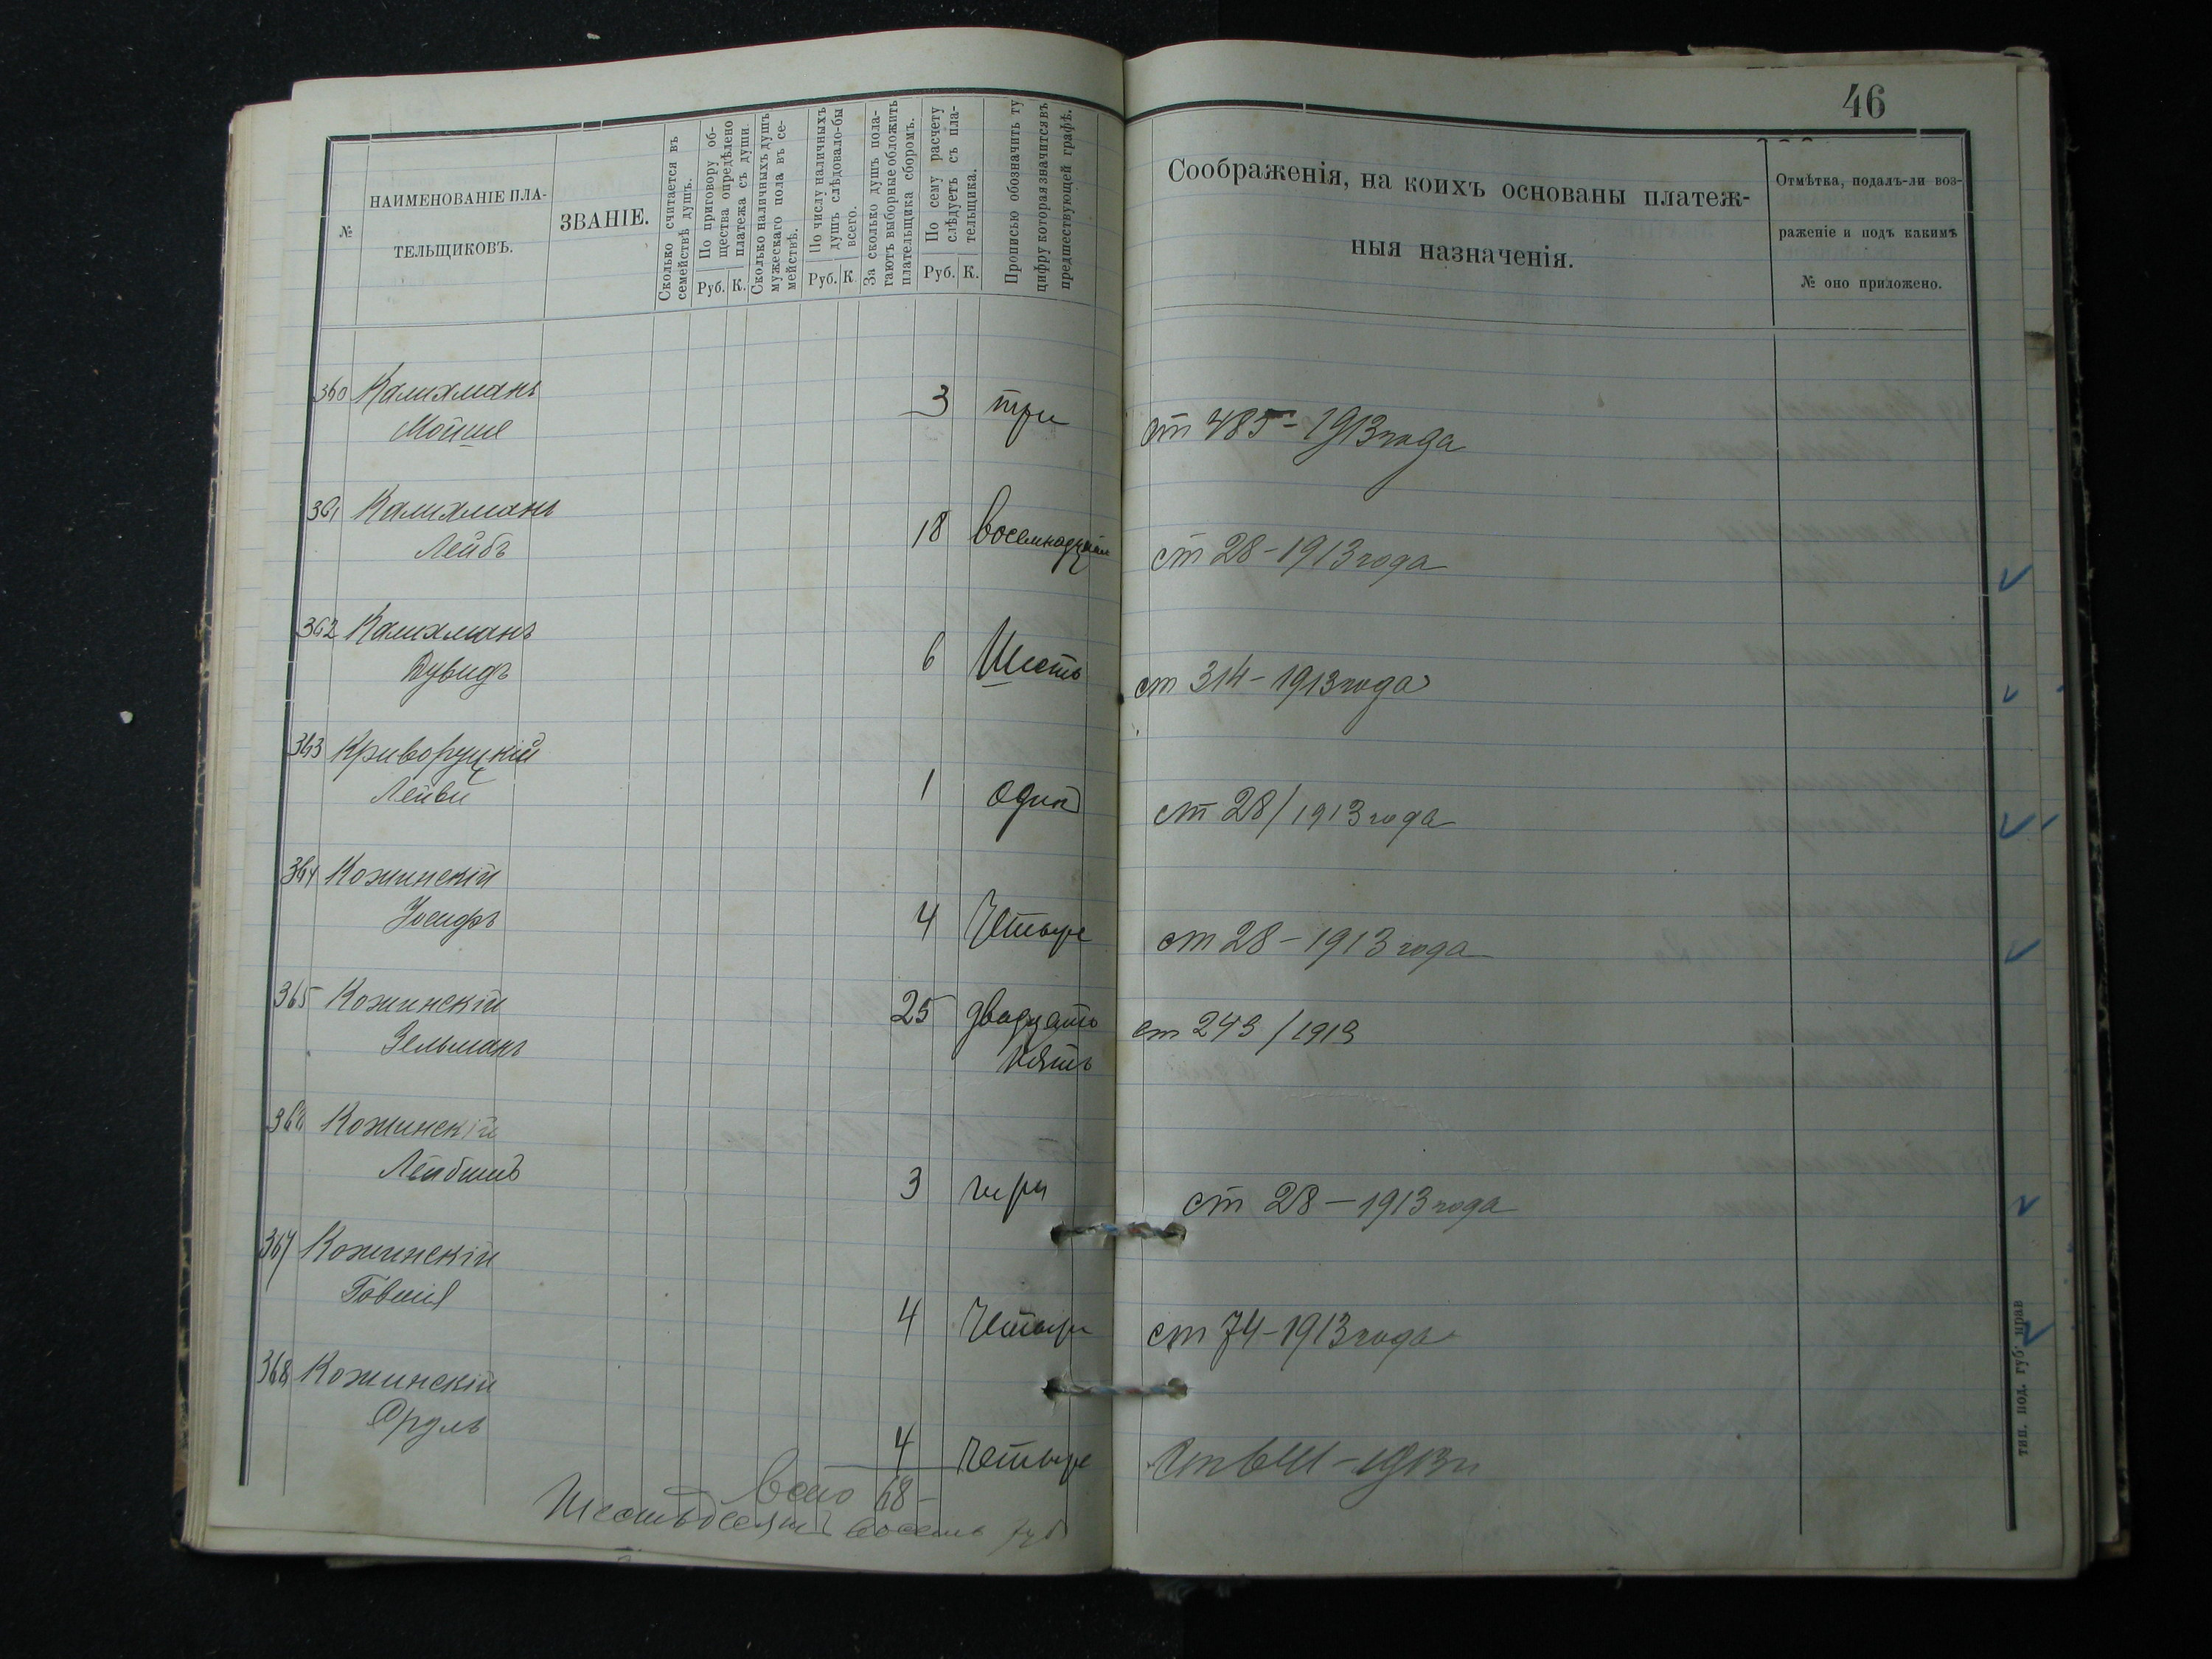 46
№
НАИМЕНОВАНІЕ ПЛА-
ТЕЛЬЩИКОВЪ.
ЗВАНІЕ.
Сколько считается въ
семействѣ душъ.
По приговору об-
щества опредѣлено
платежа съ души.
Руб. К.
Сколько наличныхъ душъ
мужескаго пола въ се-
мействѣ.
По числу наличныхъ
душъ слѣдовало-бы
всего.
Руб. К
За сколько душъ пола-
гаютъ выборные обложить
плательщика сборомъ.
По сему расчету
слѣдуетъ съ пла-
тельщика.
Руб. К.
Прописью обозначить ту
цифру которая значится въ
предшествующей графѣ.
Соображенія, на коихъ основаны платеж-
ныя назначенія.
Отмѣтка, подалъ-ли воз-
раженіе и подъ какимъ
№ оно приложено.
360 Калихманъ
Мойше
3 три
ст 485-1913 года
361 Калихманъ
Лейбъ
18 восемнадцать
ст 28-1913 года
362 Калихманъ
Дувидъ
6 Шесть
ст 314-1913 года
363 Криворуцкій
Лейви
1 один
ст 28/1913 года
364 Кожинскій
Іосифъ
4 Четыре
ст 28-1913 года
365 Кожинскій
Зельманъ
25 двадцать
пять
ст 243/1913
366 Кожинскій
Лейбишъ
3 три
ст 28-1913 года
367 Кожинскій
Говшія
4 Четыре
ст 74-1913 года
368 Кожинскій
Сруль
4 Четыре
Всего 68-
Шестьдесятъ восемь руб
тип. под. губ. прав